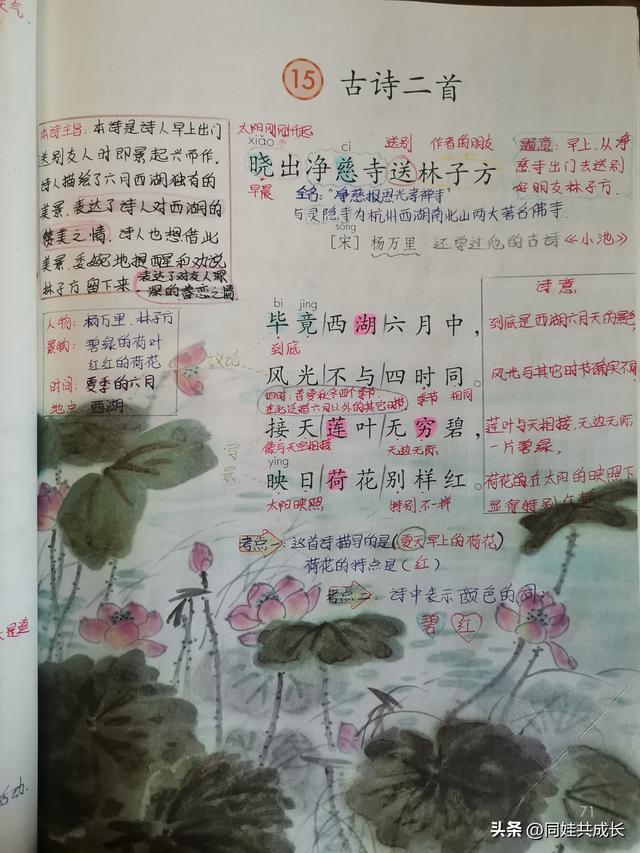 天气
15 古诗二首
本诗主旨：本诗是诗人早上出门
送别友人时即景起兴而作。
诗人描绘了六月西湖独有的
美景，表达了诗人对西湖的
赞美之情。诗人也想借此
美景，委婉地提醒和劝说
林子方留下来
表达了对友人深
深的眷恋之情。
太阳刚刚升起
送别 作者的朋友
xiǎo cí
晓出净慈寺送林子方
早晨
全名："净慈报恩光孝禅寺"
与灵隐寺为杭州西湖南北山两大著名佛寺.
题意：早上，从净
慈寺出门去送别
好朋友林子方.
sòng
[宋] 杨万里 还学过他的古诗《小池》
人物：杨万里、林子方
景物：碧绿的荷叶
红红的荷花
时间：夏季的六月
地点：西湖
议论
写景
bì jìng
毕竟|西湖|六月中，
到底
风光|不与|四时同。
四时：春夏秋冬四个季节.
在此泛指六月以外的其它时节
季节 相同
接天|莲叶|无穷碧，
像与天空相接
无边无际
yìng
映日|荷花|别样红。
太阳映照
特别不一样
诗意
到底是西湖六月天的景色
风光与其它时节确实不同
莲叶与天相接，无边无际
一片碧绿，
荷花在太阳的映照下
显得特别
考点一：这首诗描写的是（夏天早上的荷花）
荷花的特点是（红）
考点二：诗中表示颜色的词：
碧 红
71
头条 @同娃共成长